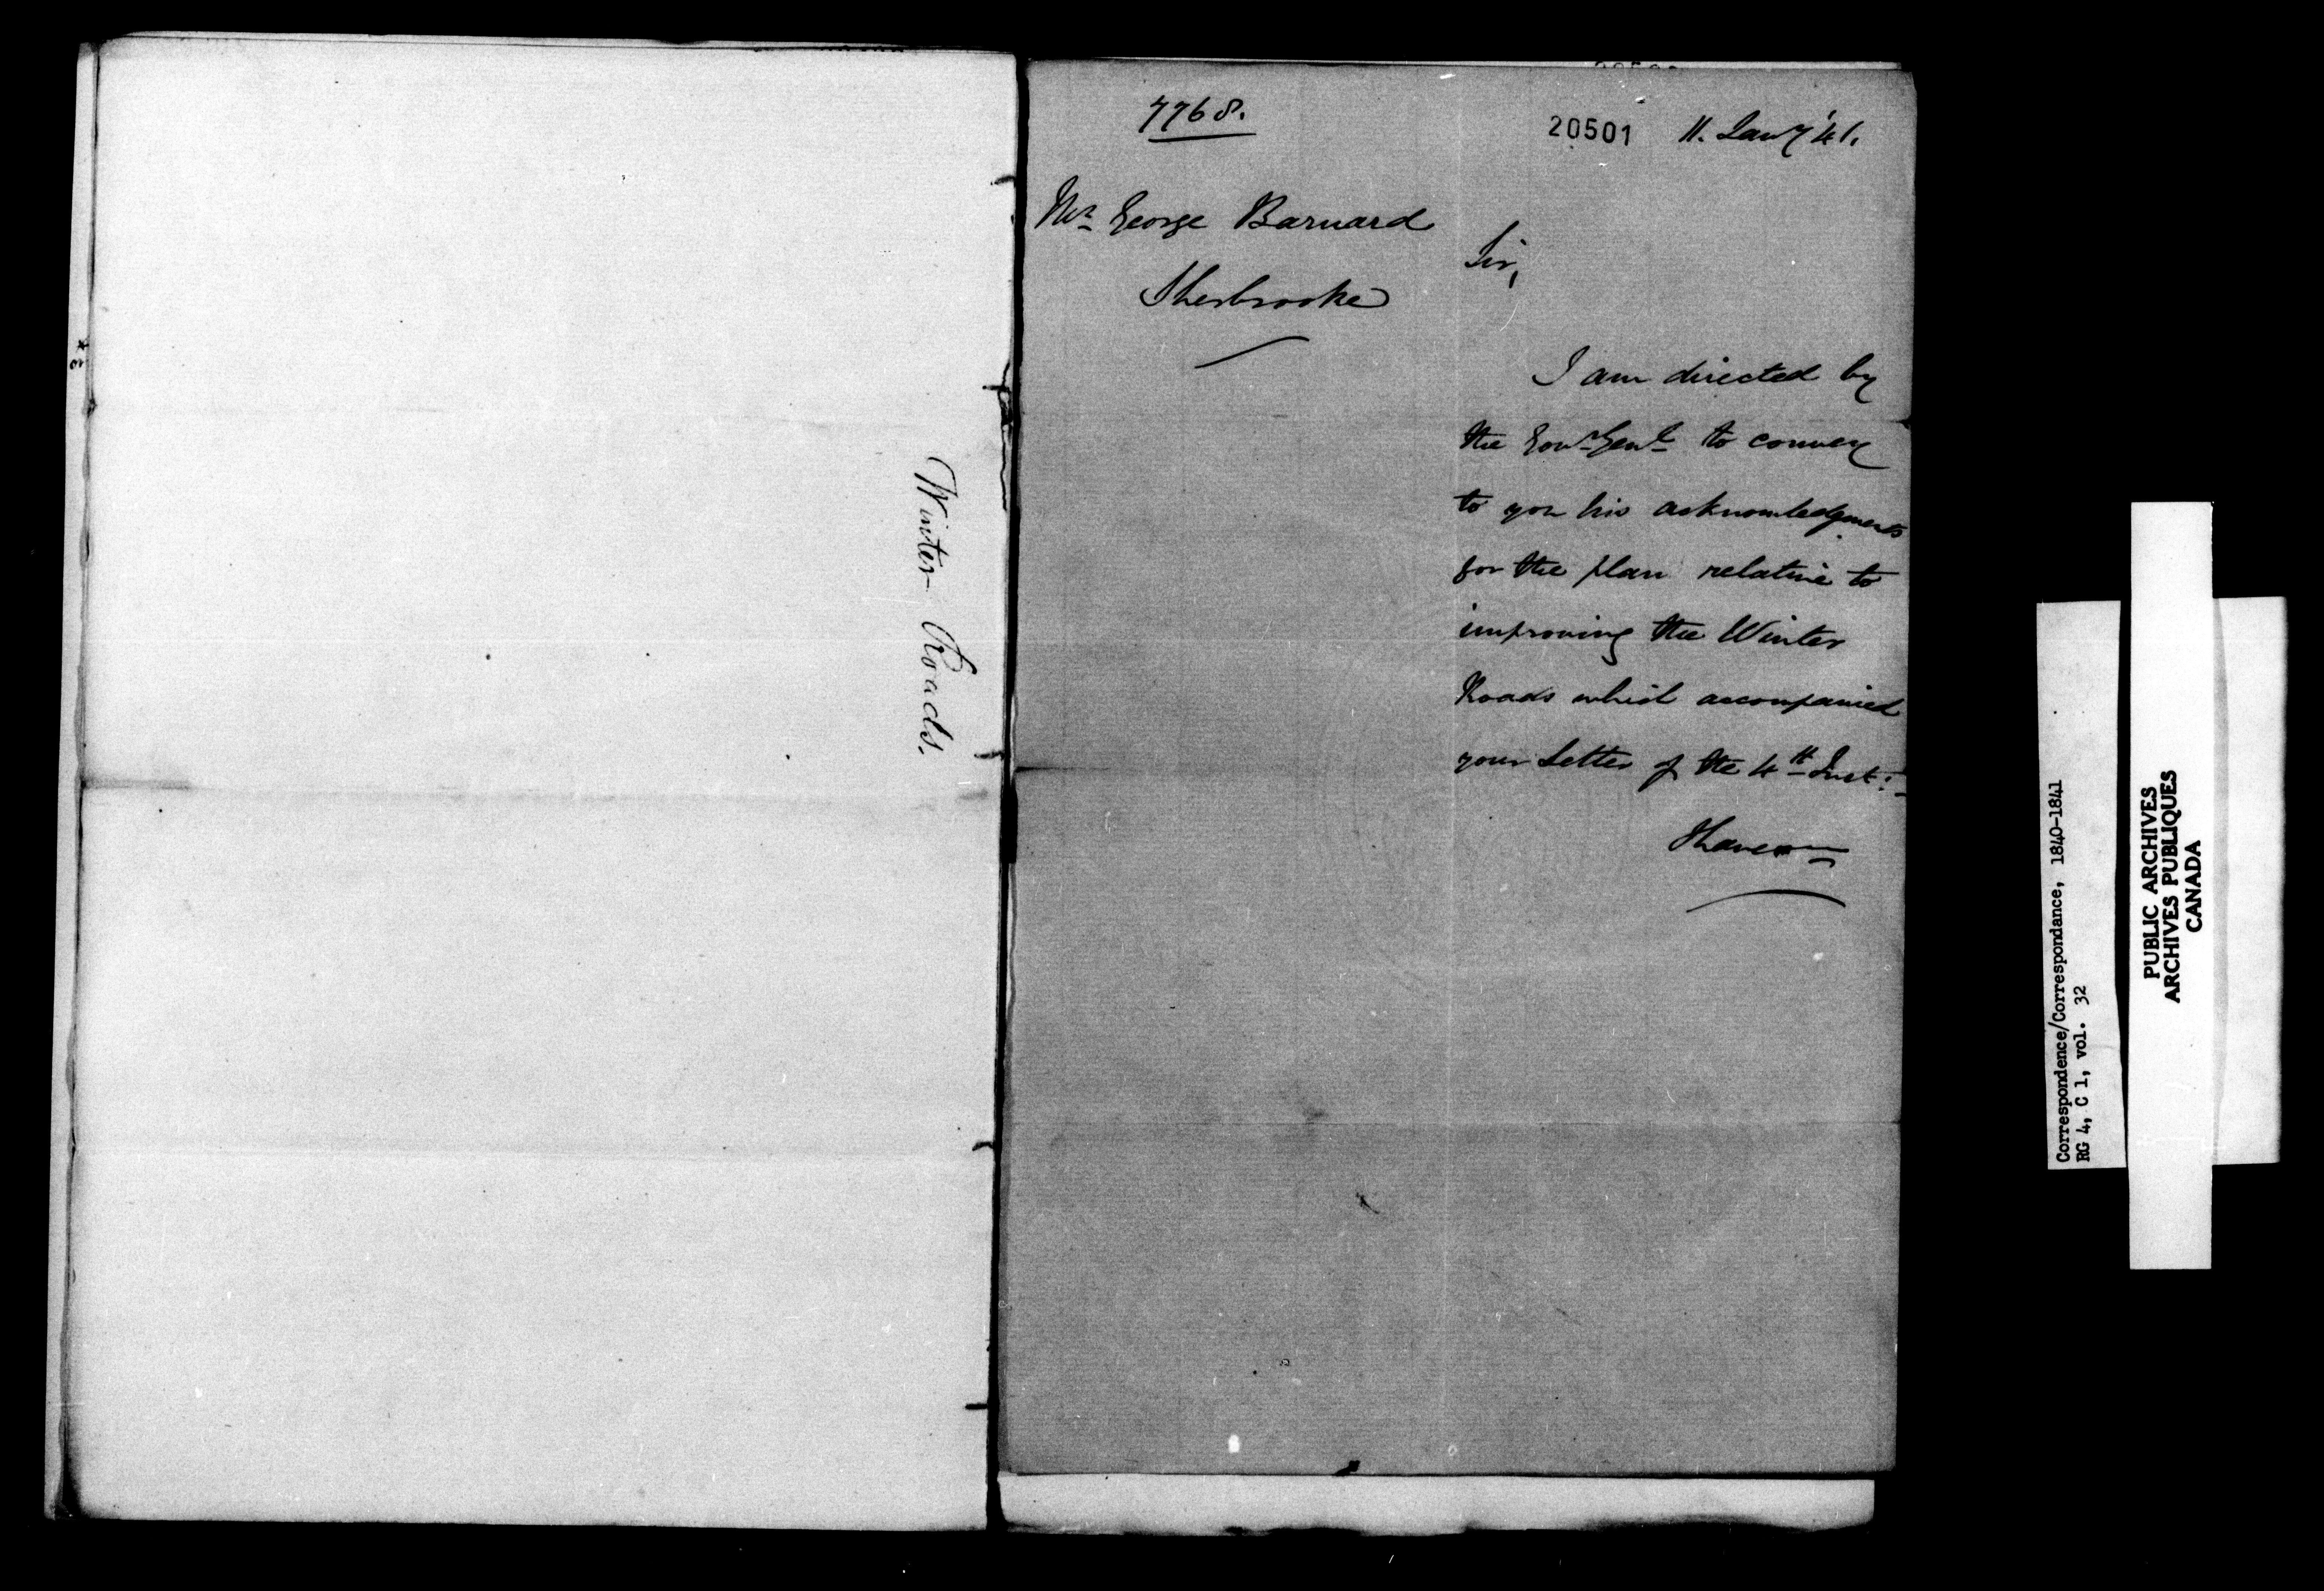 Winter Roads.
7768.
20501 11. Jany '41.
Mr George Barnard
Sherbrooke
Sir,
I am directed by
the Govr Genl to convey
to you his acknowledgments
for the plan relative to
improving the Winter
Roads which accompanied
your Letter of the 4th Inst:
I have
Correspondence/Correspondance, 1840-1841
RG 4, C 1, vol. 32
PUBLIC ARCHIVES
ARCHIVES PUBLIQUES
CANADA